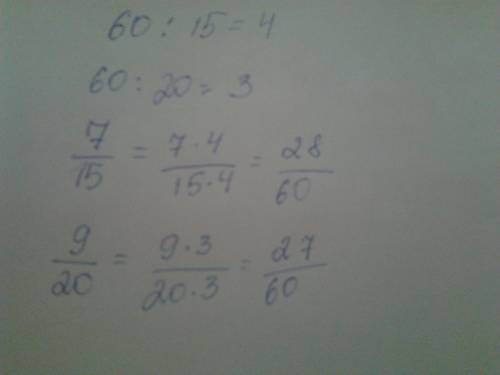 60 : 15 = 4
60 : 20 = 3
7/15 = 7·4/15·4 = 28/60
9/20 = 9·3/20·3 = 27/60